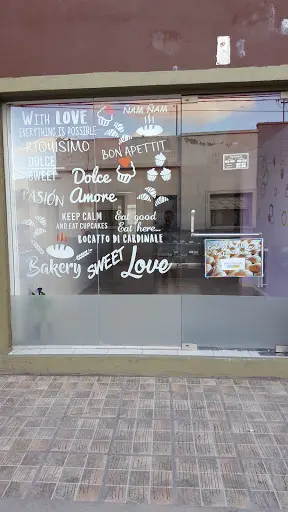 With LOVE
EVERYTHING IS POSSIBLE
RIQUÍSIMO
DULCE
SWEET
PASIÓN
ÑAM ÑAM
BON APPETTIT
Dolce
Amore
KEEP CALM
AND EAT CUPCAKES
Eat good
Eat here...
BOCATTO DI CARDINALE
Bakery
SWEET
Love